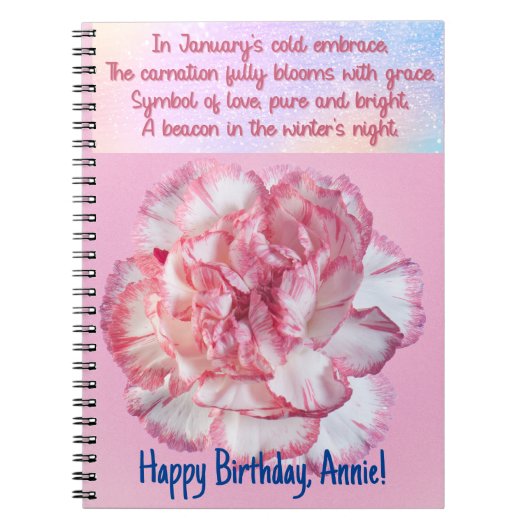 In January's cold embrace,
The carnation fully blooms with grace.
Symbol of love, pure and bright,
A beacon in the winter's night.
Happy Birthday, Annie!